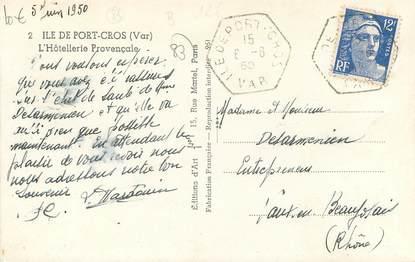 5 juin 1950
2 ILE DE PORT-CROS (Var)
L'Hôtellerie Provençale
Nous voulons espérer
que vous avez été
sur l'état de santé de
Desarmenien et qu'elle va
aussi bien que possible
maintenant. En attendant le
plaisir de vous revoir nous
nous adressons notre bon
Souvenir
Editions d'Art 15, Rue Martel, Paris
Fabrication Française - Reproduction interdite
ILE DE PORT-CROS
15
8-6
50
VAR
12F
POSTES
RF
Madame et Monsieur
Desarmenien
Entrepreneur
Vaux en Beaujolais
(Rhône)